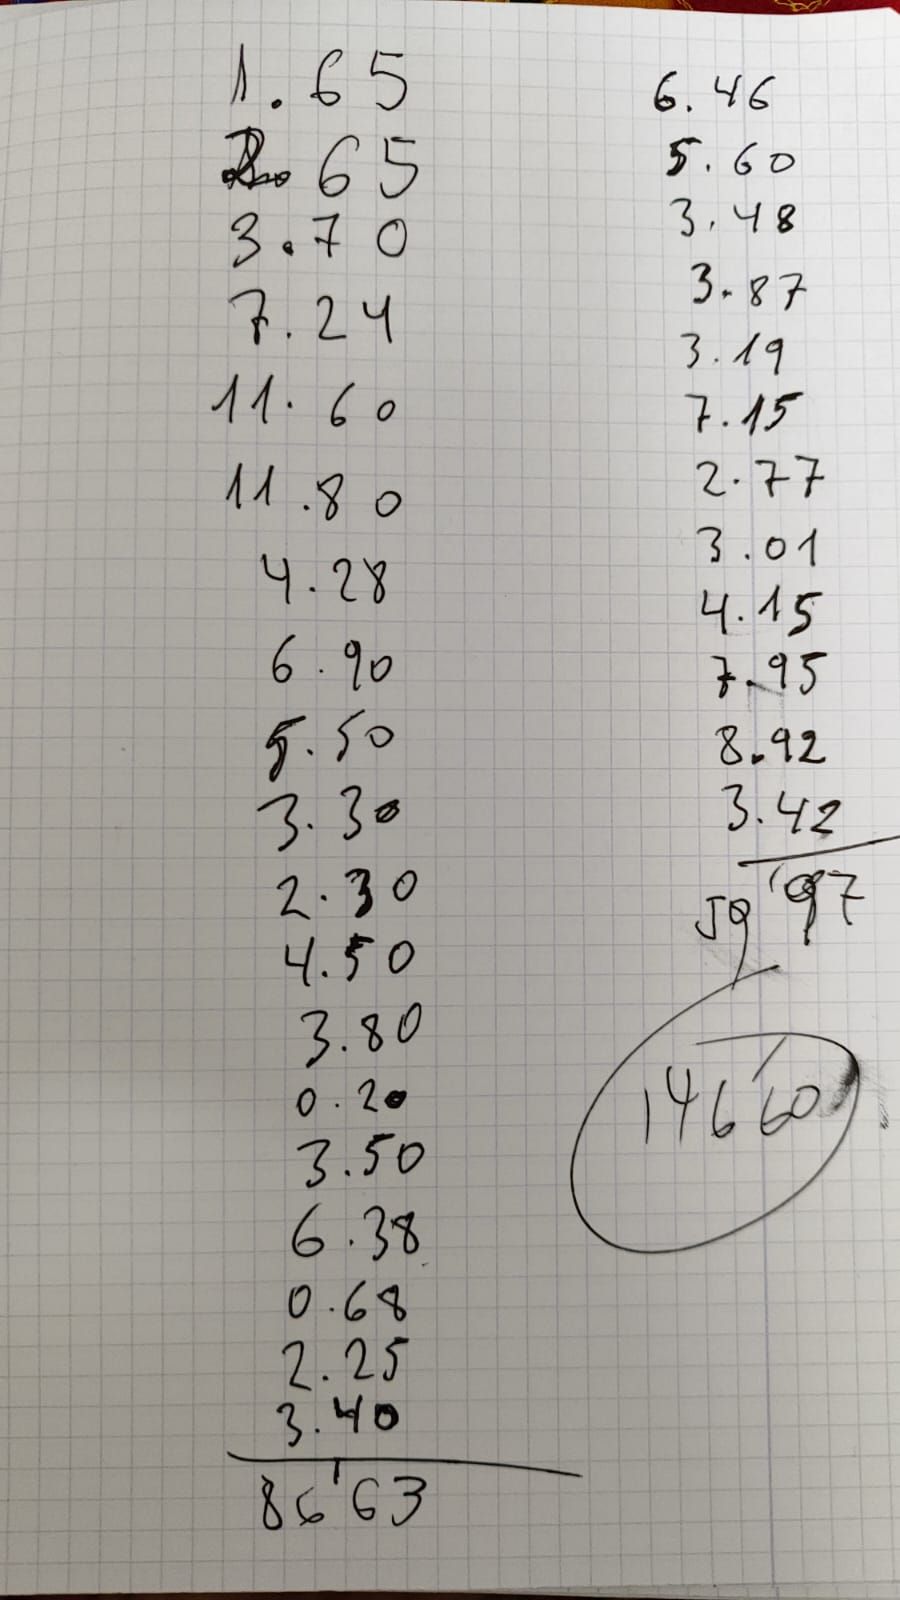 1.65
65
3.70
7.24
11.60
11.80
4.28
6.90
5.50
3.30
2.30
4.50
3.80
0.20
3.50
6.38
0.68
2.25
3.40
86'63
6.46
5.60
3.48
3.87
3.19
7.15
2.77
3.01
4.15
7.95
8.92
3.42
59'97
146'60